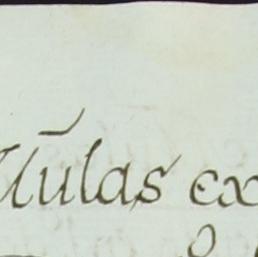 Mulas ex